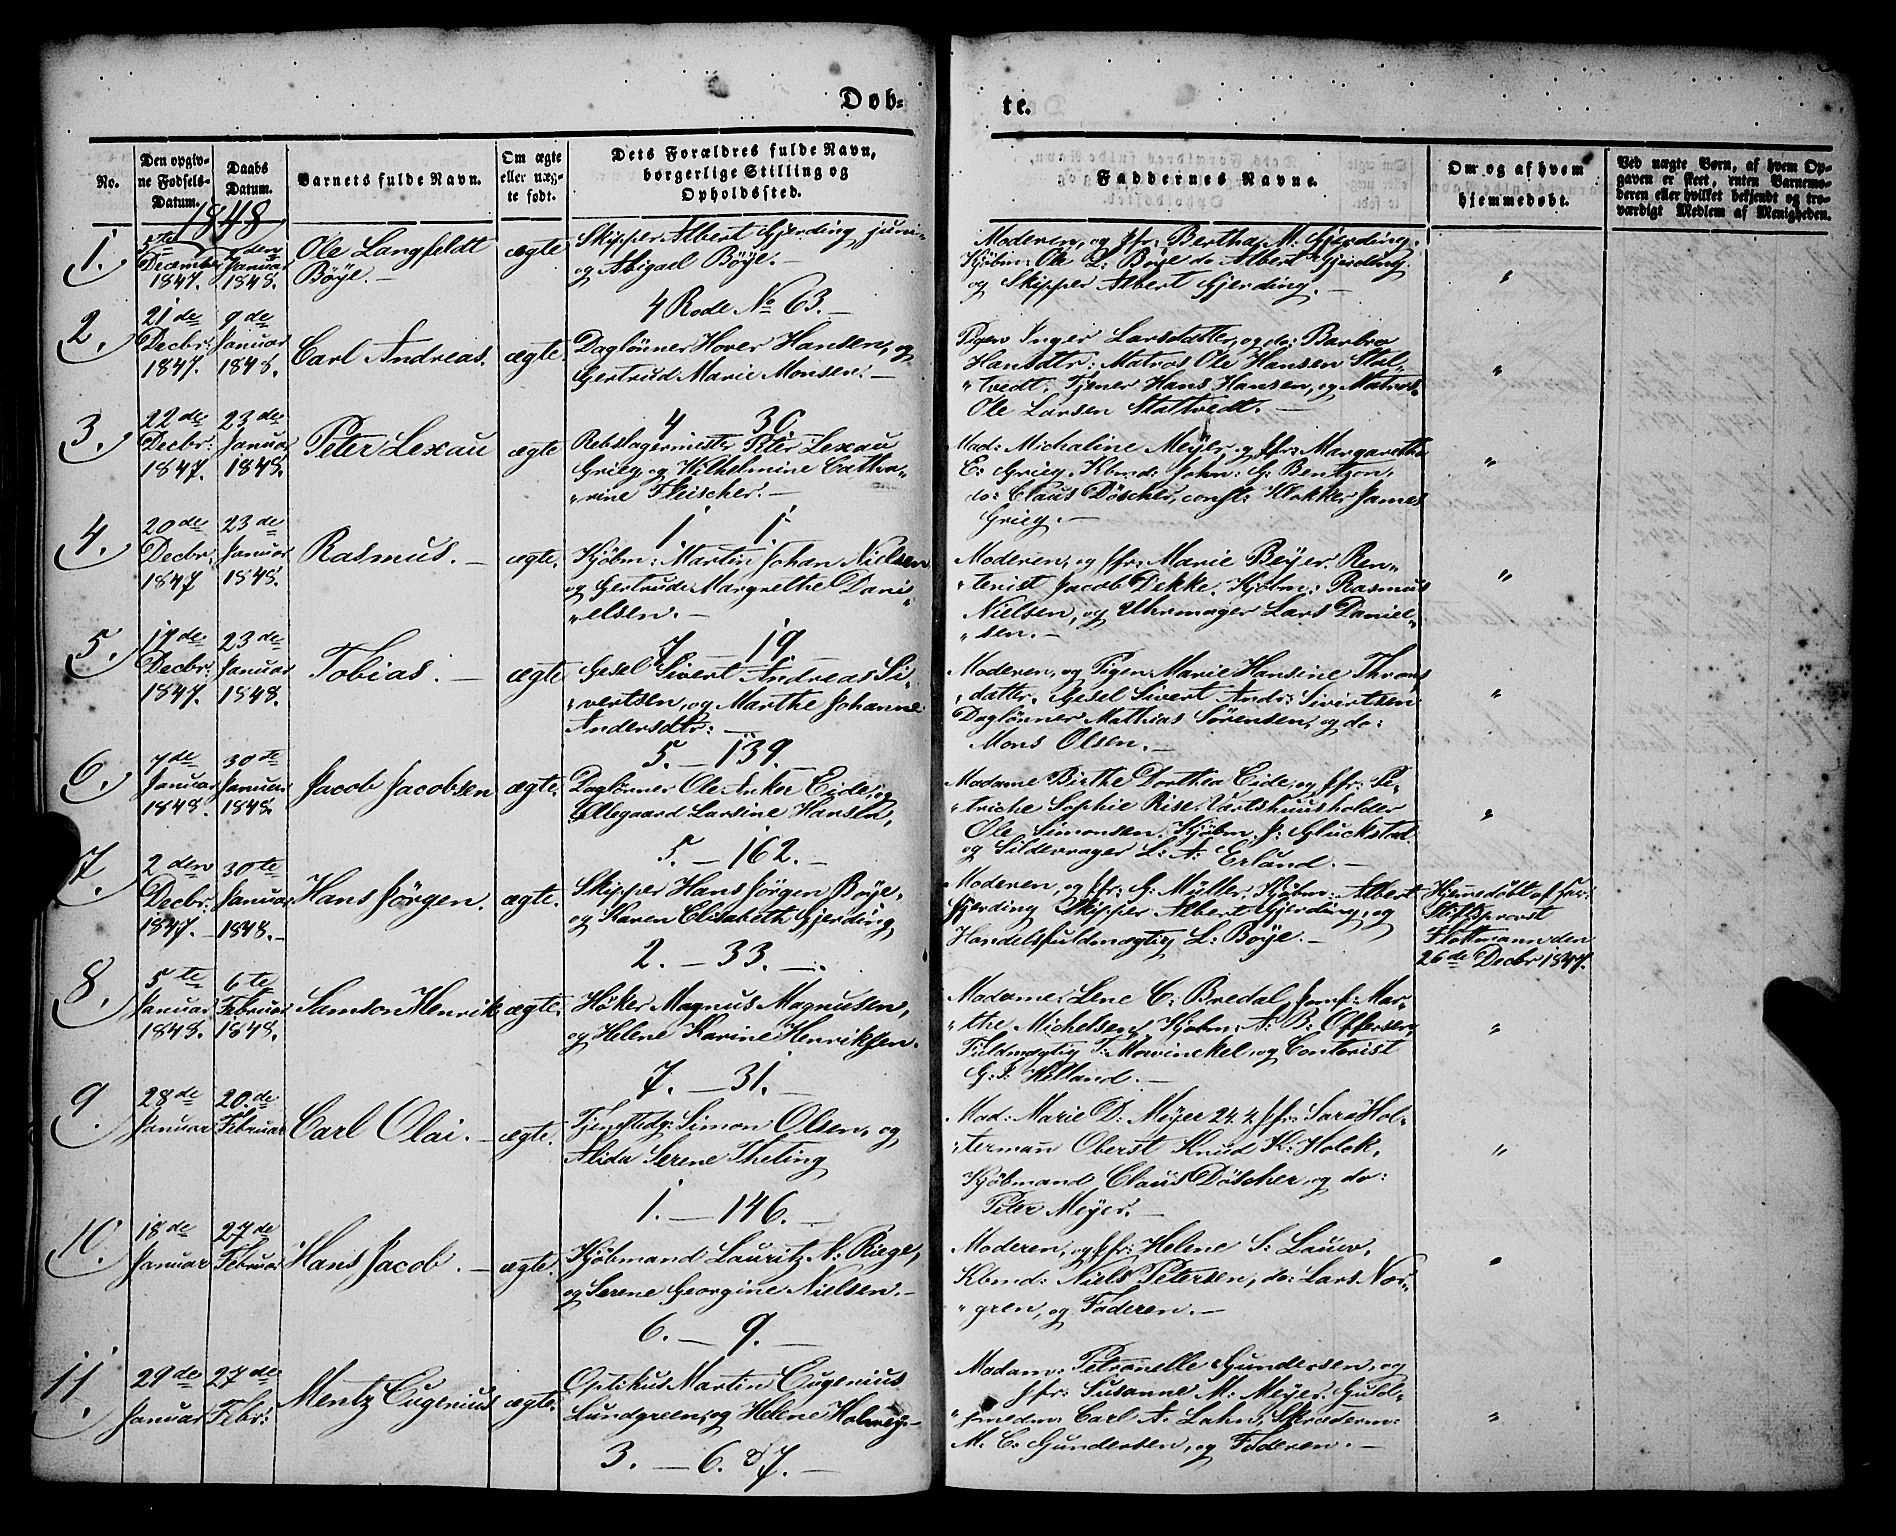 Døb-
te.
No.
Den opgiv-
ne Fødsels-
Datum.
Daabs
Datum.
Barnets fulde Navn.
Om ægte
eller uæg-
te født.
Dets Forældres fulde Navn,
borgerlige Stilling og
Opholdssted.
Faddernes Navne.
Om og af hvem
hjemmedøbt.
Ved uægte Børn, af hvem Op-
gaven er skeet, enten Barnemo-
deren eller hvilket bekjendt og tro-
værdigt Medlem af Menigheden.
1848
1.
December
1847.
Januar
1848.
Ole Langfeldt
Bøye.
ægte
Skipper Albert Gjerding jun:
og Abigael Bøye.
4 Rode No 63.
Moderen, og Jfr: Bertha M: Gjerding.
Kjøbm: Ole L: Bøye do Albert Gjerding
og Skipper Albert Gjerding.
"
2.
21de
Decbr:
1847.
9de
Januar
1848.
Carl Andreas.
ægte.
Daglønner Hover Hansen, og
Gertrud Marie Monsen.
4 30.
Pigen Inger Larsdatter, og do: Barbra
Hansdtr: Matros Ole Hansen Stal-
"tvedt, Tjener Hans Hansen, og Matros
Ole Larsen Staltvedt.
"
3.
22de
Decbr:
1847.
23de
Januar
1848.
Peter Lexau
ægte
Rebslagermester Peter Lexau
Grieg og Wilhelmine Catha-
"rine Fleischer.
1. 1.
Mad: Michaline Meyer, og Jfr: Margarethe
E: Grieg, Kbmd: John: G: Bentzon,
do: Claus Döscher, const: Klokker James
Grieg.
"
4.
20de
Decbr.
1847
23de
Januar
1848.
Rasmus.
ægte.
Kjøbm: Martin Johan Nielsen
og Gertrude Margrethe Dani-
"elsen.
7 19.
Moderen, og Jfr: Marie Beyer. Ren-
"tenist Jacob Dekke, Kjøbm: Rasmus
Nielsen, og Uhrmager Lars Daniel-
"sen.
"
5.
17de
Decbr:
1847.
23de
Januar
1848.
Tobias.
ægte
Gesel Sivert Andreas Si-
"vertsen, og Marthe Johanne
Andersdtr:
5. 139.
Moderen, og Pigen Marie Hansine Throns
"datter. Gesel Sivert And: Sivertsen
Daglønner Mathias Sørensen, og do:
Mons Olsen.
"
6.
7de
Januar
1848.
30te
Januar
1848.
Jacob Jacobsen
ægte.
Daglønner Ole Anker Eide, og
Ollegaard Larsine Hansen,
5. 162.
Madame Birthe Dorthea Eide, og Jfr: Pe-
"triche Sophie Rise. Værtshuusholder
Ole Simonsen, Kjøbm. J: Gluckstad
og Sildevrager L: A: Erland.
"
7.
2den
Decbr:
1847.
30te
Januar
1848.
Hans Jørgen.
ægte.
Skipper Hans Jørgen Bøye,
og Karen Elisabeth Gjerding
2. 33.
Moderen, og Jfr: G: Müller, Kjøbm: Albert
Gjerding Skipper Albert Gjerding, og
Handelsfuldmægtig L: Bøye.
Hjemedøbt af Hr:
Stiftsprovst
Flottmann den
26de Decbr 1847.
8.
5te
Januar
1848.
6te
Februar
1848.
Samson Henrik
ægte.
Høker Magnus Magnusen,
og Helene Karine Henriksen.
7. 31.
Madamer Lene C: Bredal, Jomf: Mar-
"the Michelsen, Kjøbm: A: B: Offersen,
Fuldmægtig T: Mowinckel, og Contorist
G: J: Helland.
"
9.
28de
Januar
20.de
Februar
Carl Olai.
ægte.
Tjenstedg: Simon Olsen, og
Alida Serene Theting
1. 146.
Mad: Marie D: Meyer Jfr: Sara Hol-
"terman Oberst Knud K: Holck,
Kjøbmand Claus Döscher, og do:
Peter Meyer.
"
10.
18de
Januar
27de
Februar
Hans Jacob.
ægte.
Kjøbmand Lauritz N: Riege,
og Serene Georgine Nielsen.
6. 9.
Moderen, og Jfr: Helene S: Lauw,
Kbmd: Niels Petersen, do: Lars Nor-
"gren, og Faderen.
"
11.
29de
Januar
27de
Febr:
Mentz Eugenius
ægte.
Optikus Martin Eugenius
Lundgreen, og Helene
3. 6. 7.
Madam: Petronelle Gundersen, og
Jfr: Susanne M: Meyer. Guld-
"smedm: Carl A: Lahn, Skræderm:
M. C: Gundersen, og Faderen.
"